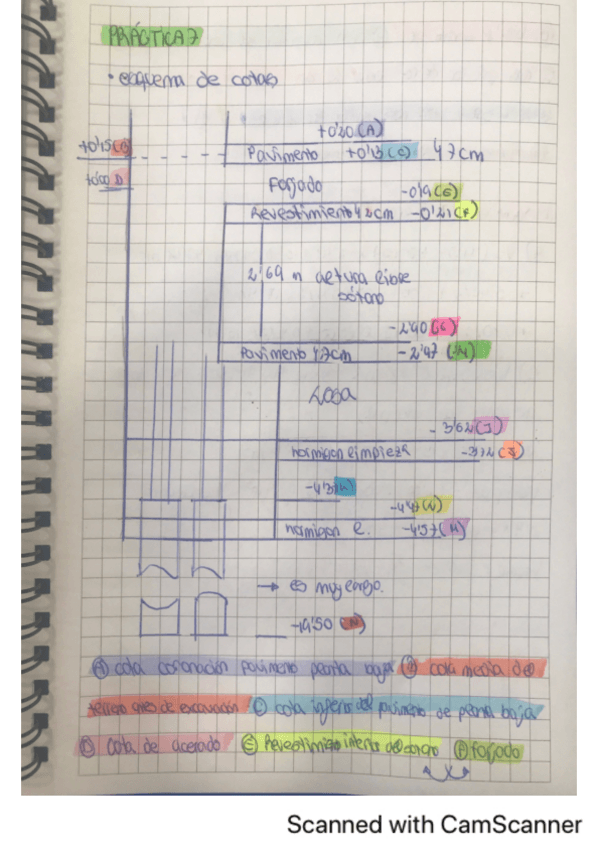 PRÁCTICA 7
• esquema de cotas
+0'20 (A)
+0'15 (B)
Pavimento +0'13 (C) 47cm
+0'00 D
Forjado
-0'19 (E)
Revestimiento 42cm -0'21 (F)
2'69 m altura libre
sótano
-2'40 (G)
Pavimento 47cm -2'47 (H)
Losa
-3'62 (I)
hormigon limpieza
-4'47 (L)
hormigon l. -4'57 (M)
→ es muy largo.
-19'50 (N)
(A) cota coronación pavimento planta baja (B) cota media del
terreno antes de excavación (C) cota inferior del pavimento de planta baja
(D) Cota de acerado (E) Revestimiento inferior del (F) forjado
Scanned with CamScanner